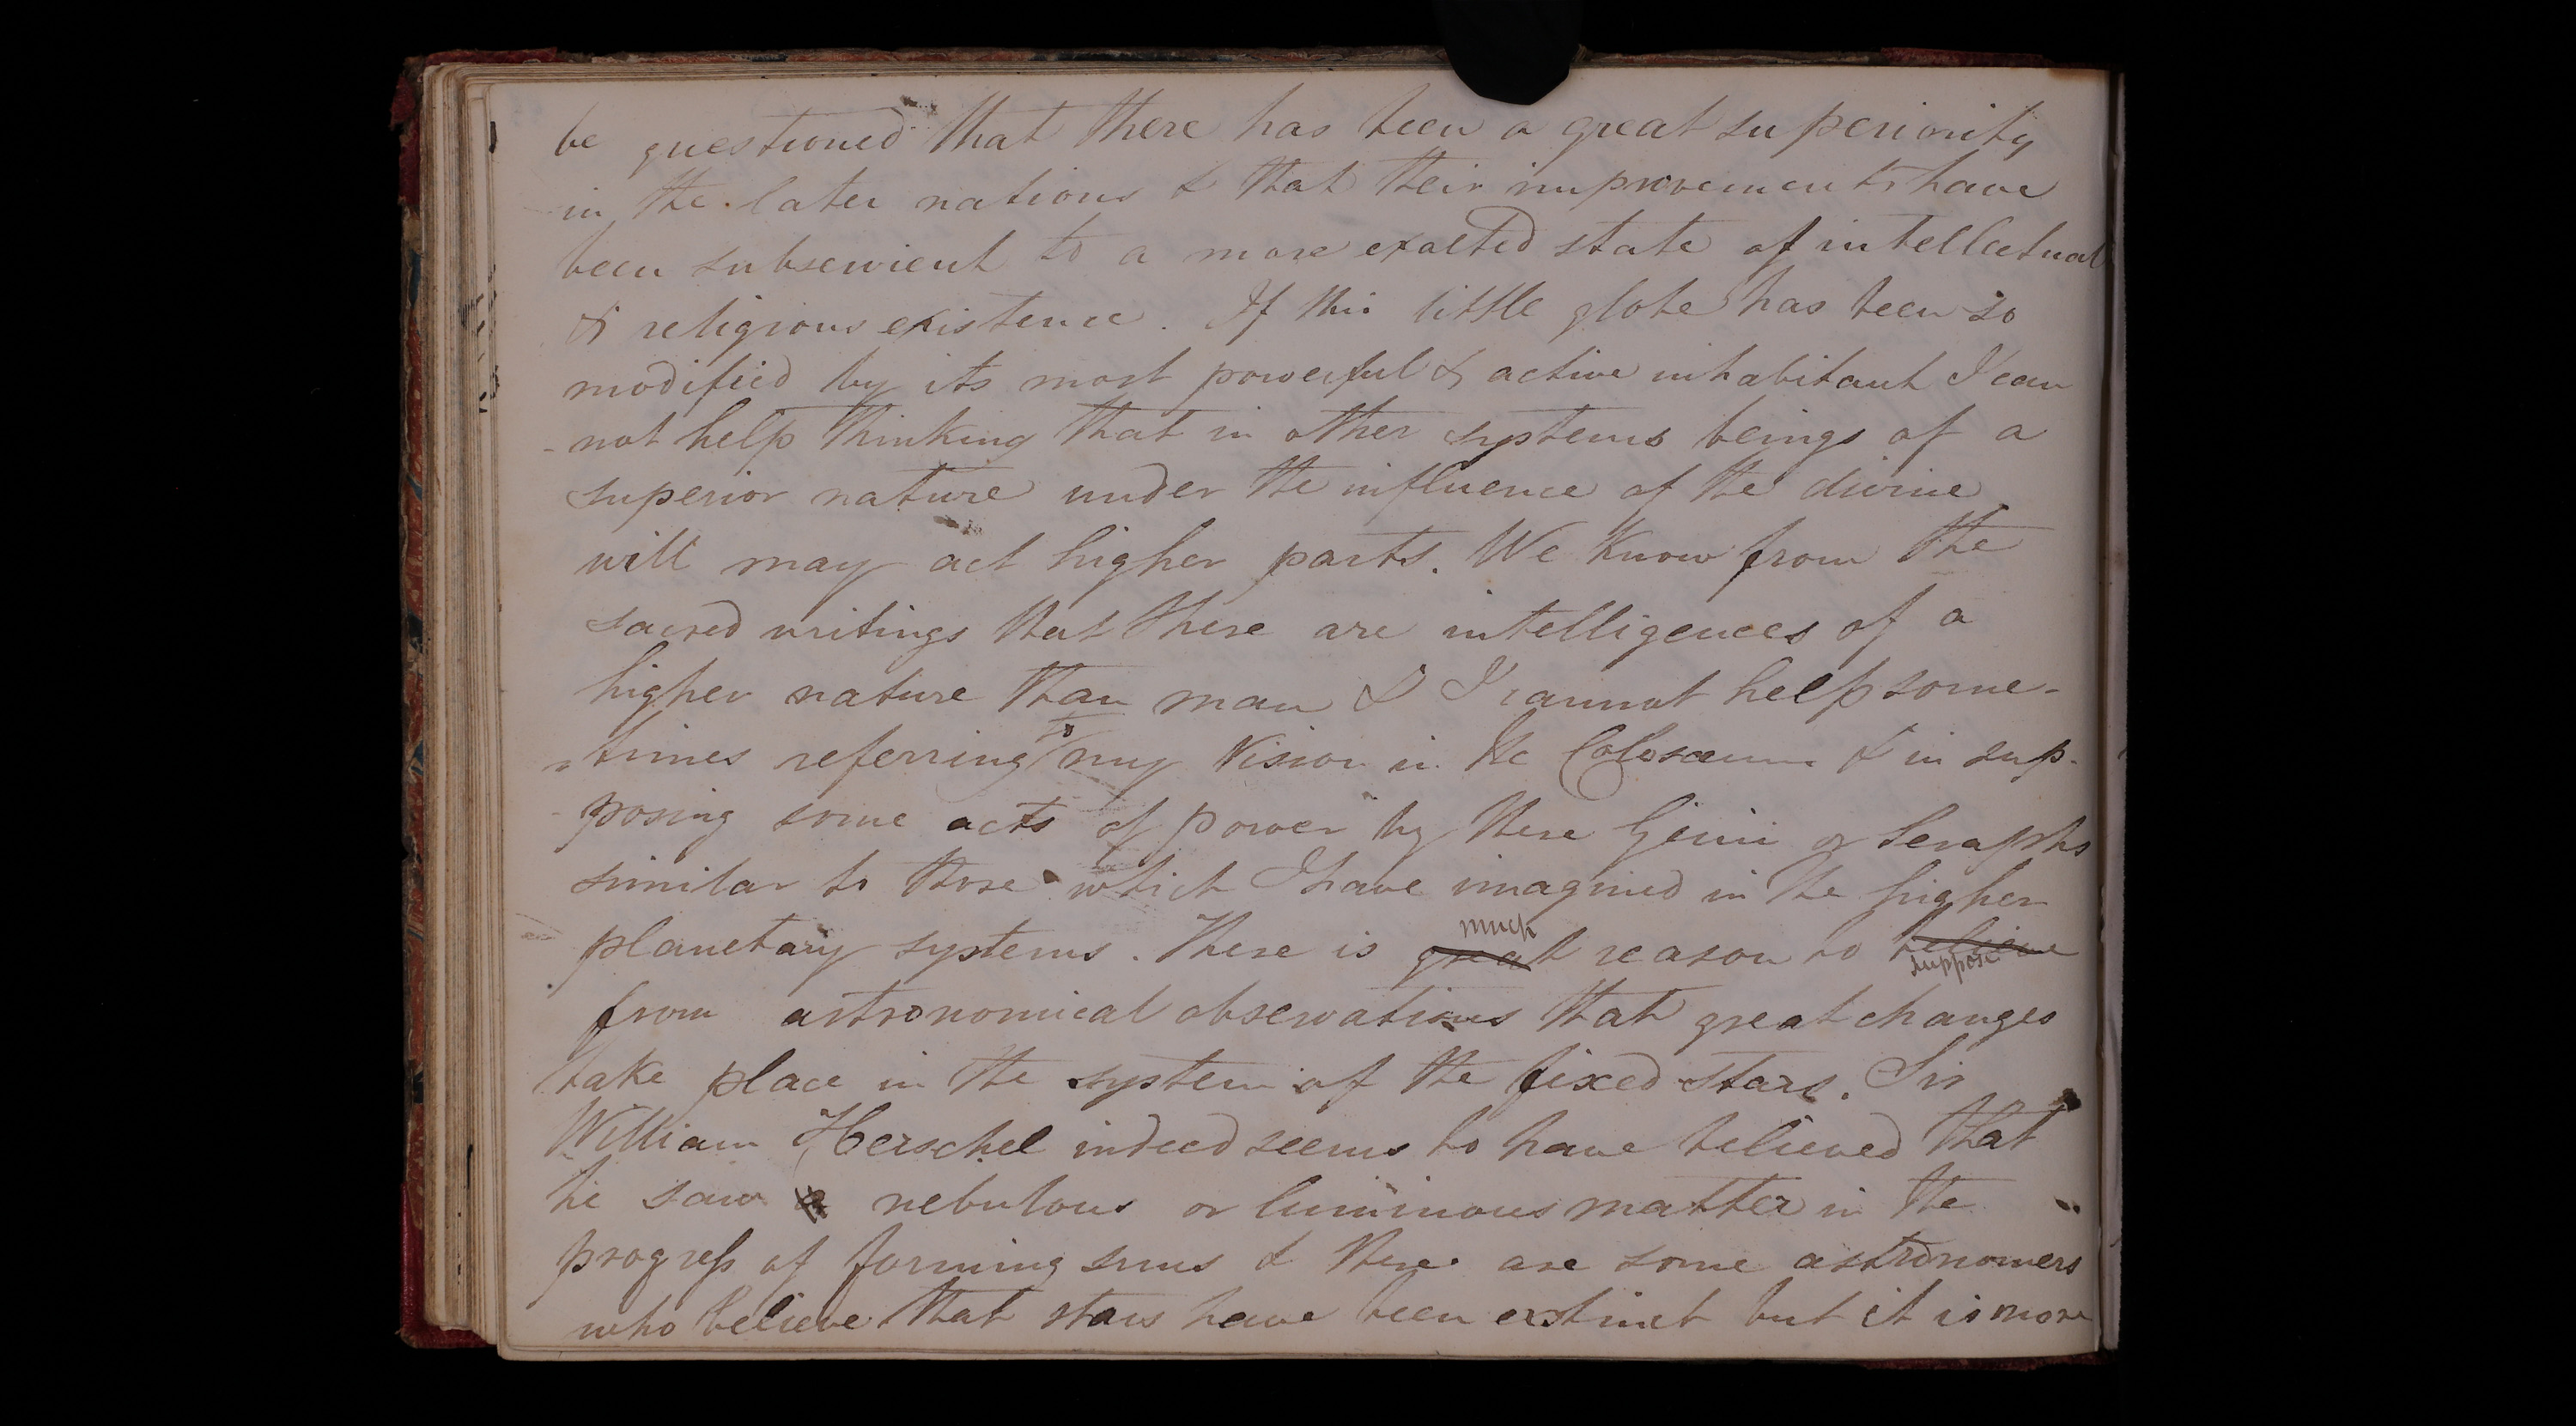 be questioned that there has been a great superiority
in the later nations & that their improvements have
been subservient to a more exalted state of intellectual
& religious existence. If this little globe has been so
modified by its most powerful & active inhabitant I can
not help thinking that in other systems beings of a
superior nature under the influence of the divine
will may act higher parts. We know from the
sacred writings that there are intelligences of a
higher nature than man & I cannot help some-
times referring to my Vision in the Colosæum & in sup-
posing some acts of power by these Genii or Seraphs
similar to those which I have imagined in the higher
planetary systems. There is great much reason to believe suppose
from astronomical observations that great changes
take place in the system of the fixed stars. Sir
William Herschel indeed seems to have believed that
he saw nebulous or luminous matter in the
progress of forming suns & there are some astronomers
who believe that stars have been extinct but it is more